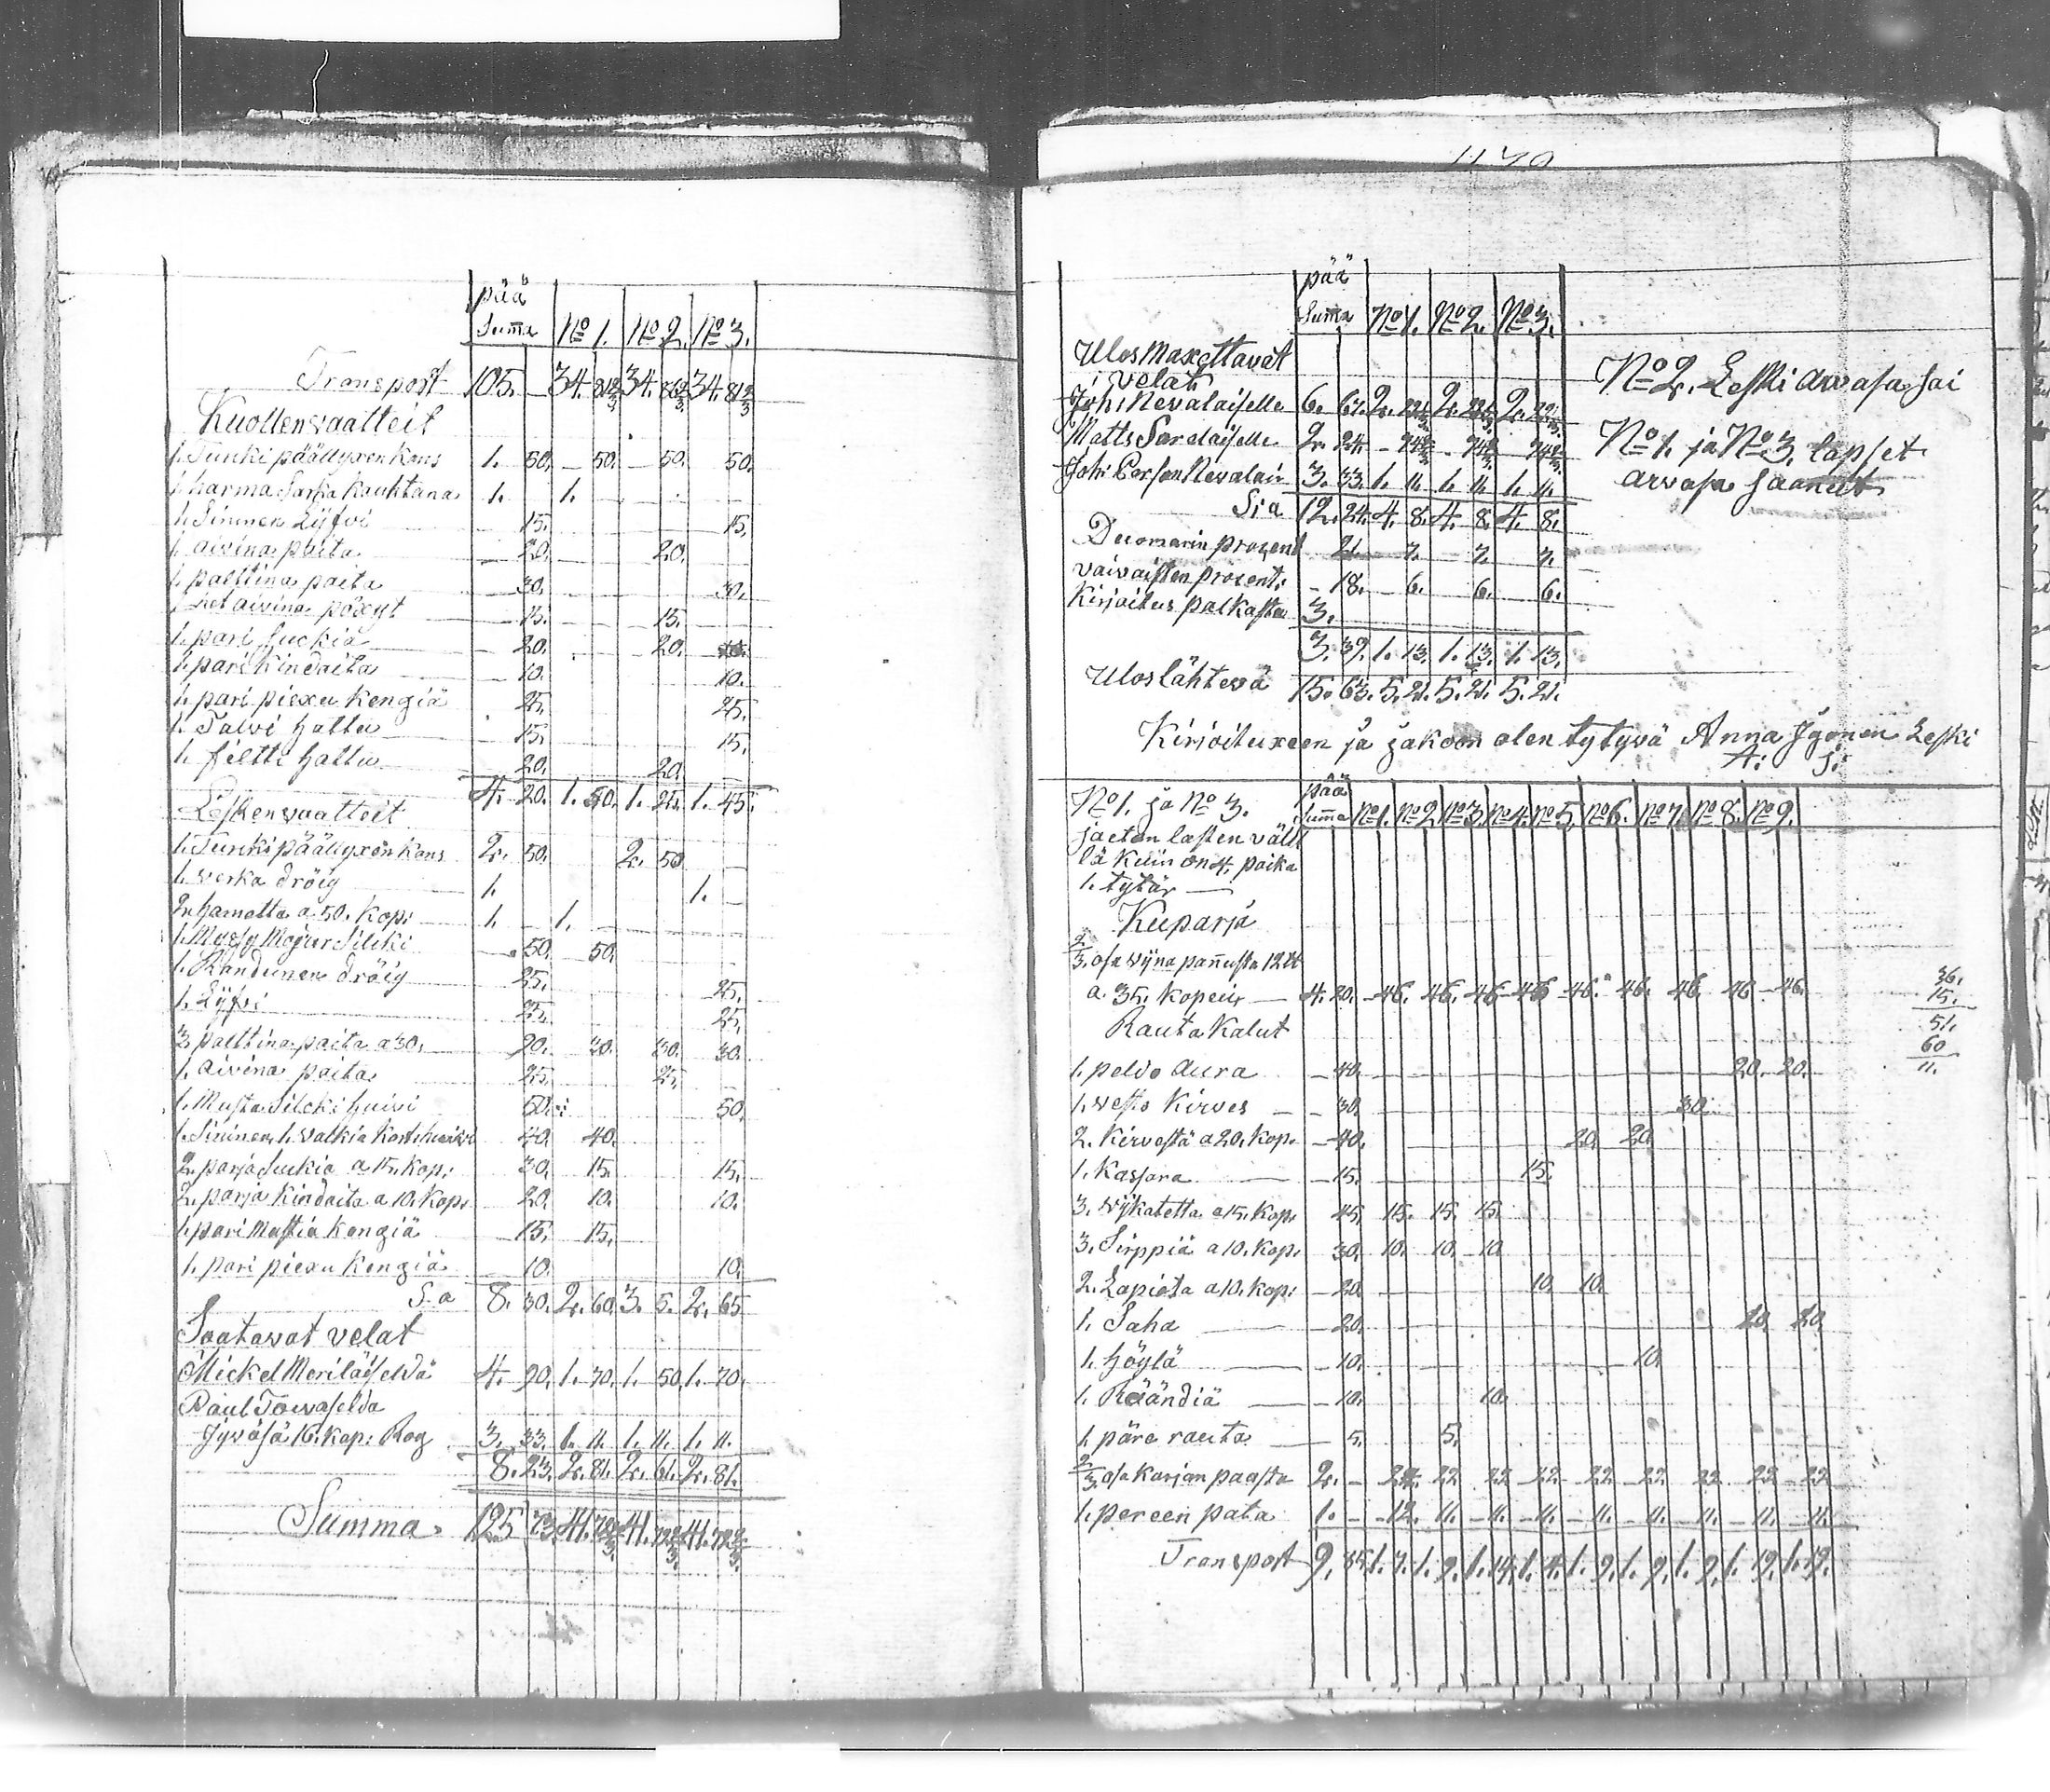 pää
Summa No 1. No 2. No 3.
Transport 105. — 34. 81 2/3 34. 86 2/3 34. 81 2/3
Kuollen vaatteit
1. Turcki päällyxen kans 1. 50. — 50. — 50. 50.
1. harma Sarka Kauhtana 1. 1.
1. Sininen Lijfvi — 15. 15.
1. aivina paita — 20. 20.
1. palttina paita — 30. 30.
1. het aivina pöxyt — 15. 15.
1. pari Suckia — 20. 20.
1. pari Kindaita — 10. 10.
1. pari piexu Kengiä 25. 25.
1. Talvi hattu — 15. 15.
1. filtti hattu 20. 20.
4. 20. 1. 50. 1. 25. 1. 45.
Lesken vaatteit
1. Turcki päällyxen Kans 2. 50. 2. 50
1. verka dröig 1. 1. —
2. hametta a 50. Kop: 1. 1.
1. Silcki — 50. 50.
1. Randunen dröig 25. 25.
1. Lijfvi 25. 25.
3. palttina paita a 30. 90. 30. 30. 30.
1. aivina paita 25. 25.
1. Musta Silcki huivi 50. 50.
1. Sininen 1. valkia 40. 40.
2. parja Suckia a 15. kop: 30. 15. 15.
2. parja Kindaita a 10. Kop: 20. 10. 10.
1. pari Mustia Kengiä — 15. 15.
1. pari piexu Kengiä — 10. 10.
S:a 8. 30. 2. 60. 3. 5. 2. 65
Saatavat velat
Mickel Meriläiseldä 4. 90. 1. 70. 1. 50. 1. 70.
Paul Towaselda
Jyväsä 16. kap: Rog 3. 33. 1. 11. 1. 11. 1. 11.
8. 23. 2. 81. 2. 61. 2. 81.
Summa. 125 73. 41. 72 2/3. 41. 72 2/3. 41. 72 2/3.
1170
pää
Summa No 1. No 2. No 3.
Ulos Maxettavat
velat
Joh: Nevalaiselle 6. 67. 2. 22 1/3. 2. 22 1/3. 2. 22 1/3.
Matts Sardaiselle 2. 24. — 74 2/3. — 74 2/3. — 74 2/3.
Joh: Persson Nevalain 3. 33. 1. 11. 1. 11. 1. 11.
S:a 12. 24. 4. 8. 4. 8. 4. 8.
Duomarin prosent 21. — 7. 7. 7.
vaivaisten prosent: — 18. — 6. 6. 6.
Kirjoitus palkasta 3.
3. 39. 1. 13. 1. 13. 1. 13.
Ulos lähtevä 15. 63. 5. 21. 5. 21. 5. 21.
No 2. Leski arvasa sai
No 1. ja No 3. lapset
arvasa saanut
Kirjoituxeen ja jakoon olen tytyvä Anna Jgonen Leski
A: J:
No 1. ja No 3. pää
Summa No 1. No 2 No 3. No 4. No 5. No 6. No 7. No 8. No 9.
jaetan lasten väl
lä kuin on 4. poika
1. tytär —
Kuparja
2/3. osa vijna pannusta 12 lb
a. 35. kopeik — 4. 20. — 46. 46. 46 — 46 — 46. 46. 46. 46 — 46.
36.
15.
51.
60
11.
Rauta Kalut
1. peldo aura — 40. 20. 20.
1. vesto Kirves — — 30. 30.
2. Kirvestä a 20. Kop. — 40. 20. 20
1. Kassara — — 15. 15.
3. wijkatetta a 15. Kop. 45. 15. 15. 15.
3. Sirppiä a 10. Kop. 30. 10. 10. 10
2. Lapiota a 10. kop: — 20. 10. 10.
1. Saha — — 20. 10. 10.
1. höylä — — 10. 10.
1. Räändiä — — 10. 10.
1. päre rauta — — 5. 5.
2/3. osa Karjan paasta 2. — 24. 22 22 — 22 — 22 — 22. 22 22 — 22
1. pereen pata 1. — — 12. 11. — 11. — 11. — 11. — 11. — 11. — 11. — 11.
Transport 9. 85. 1. 7. 1. 9. 1. 14. 1. 4. 1. 9. 1. 9. 1. 9. 1. 19. 1. 19.